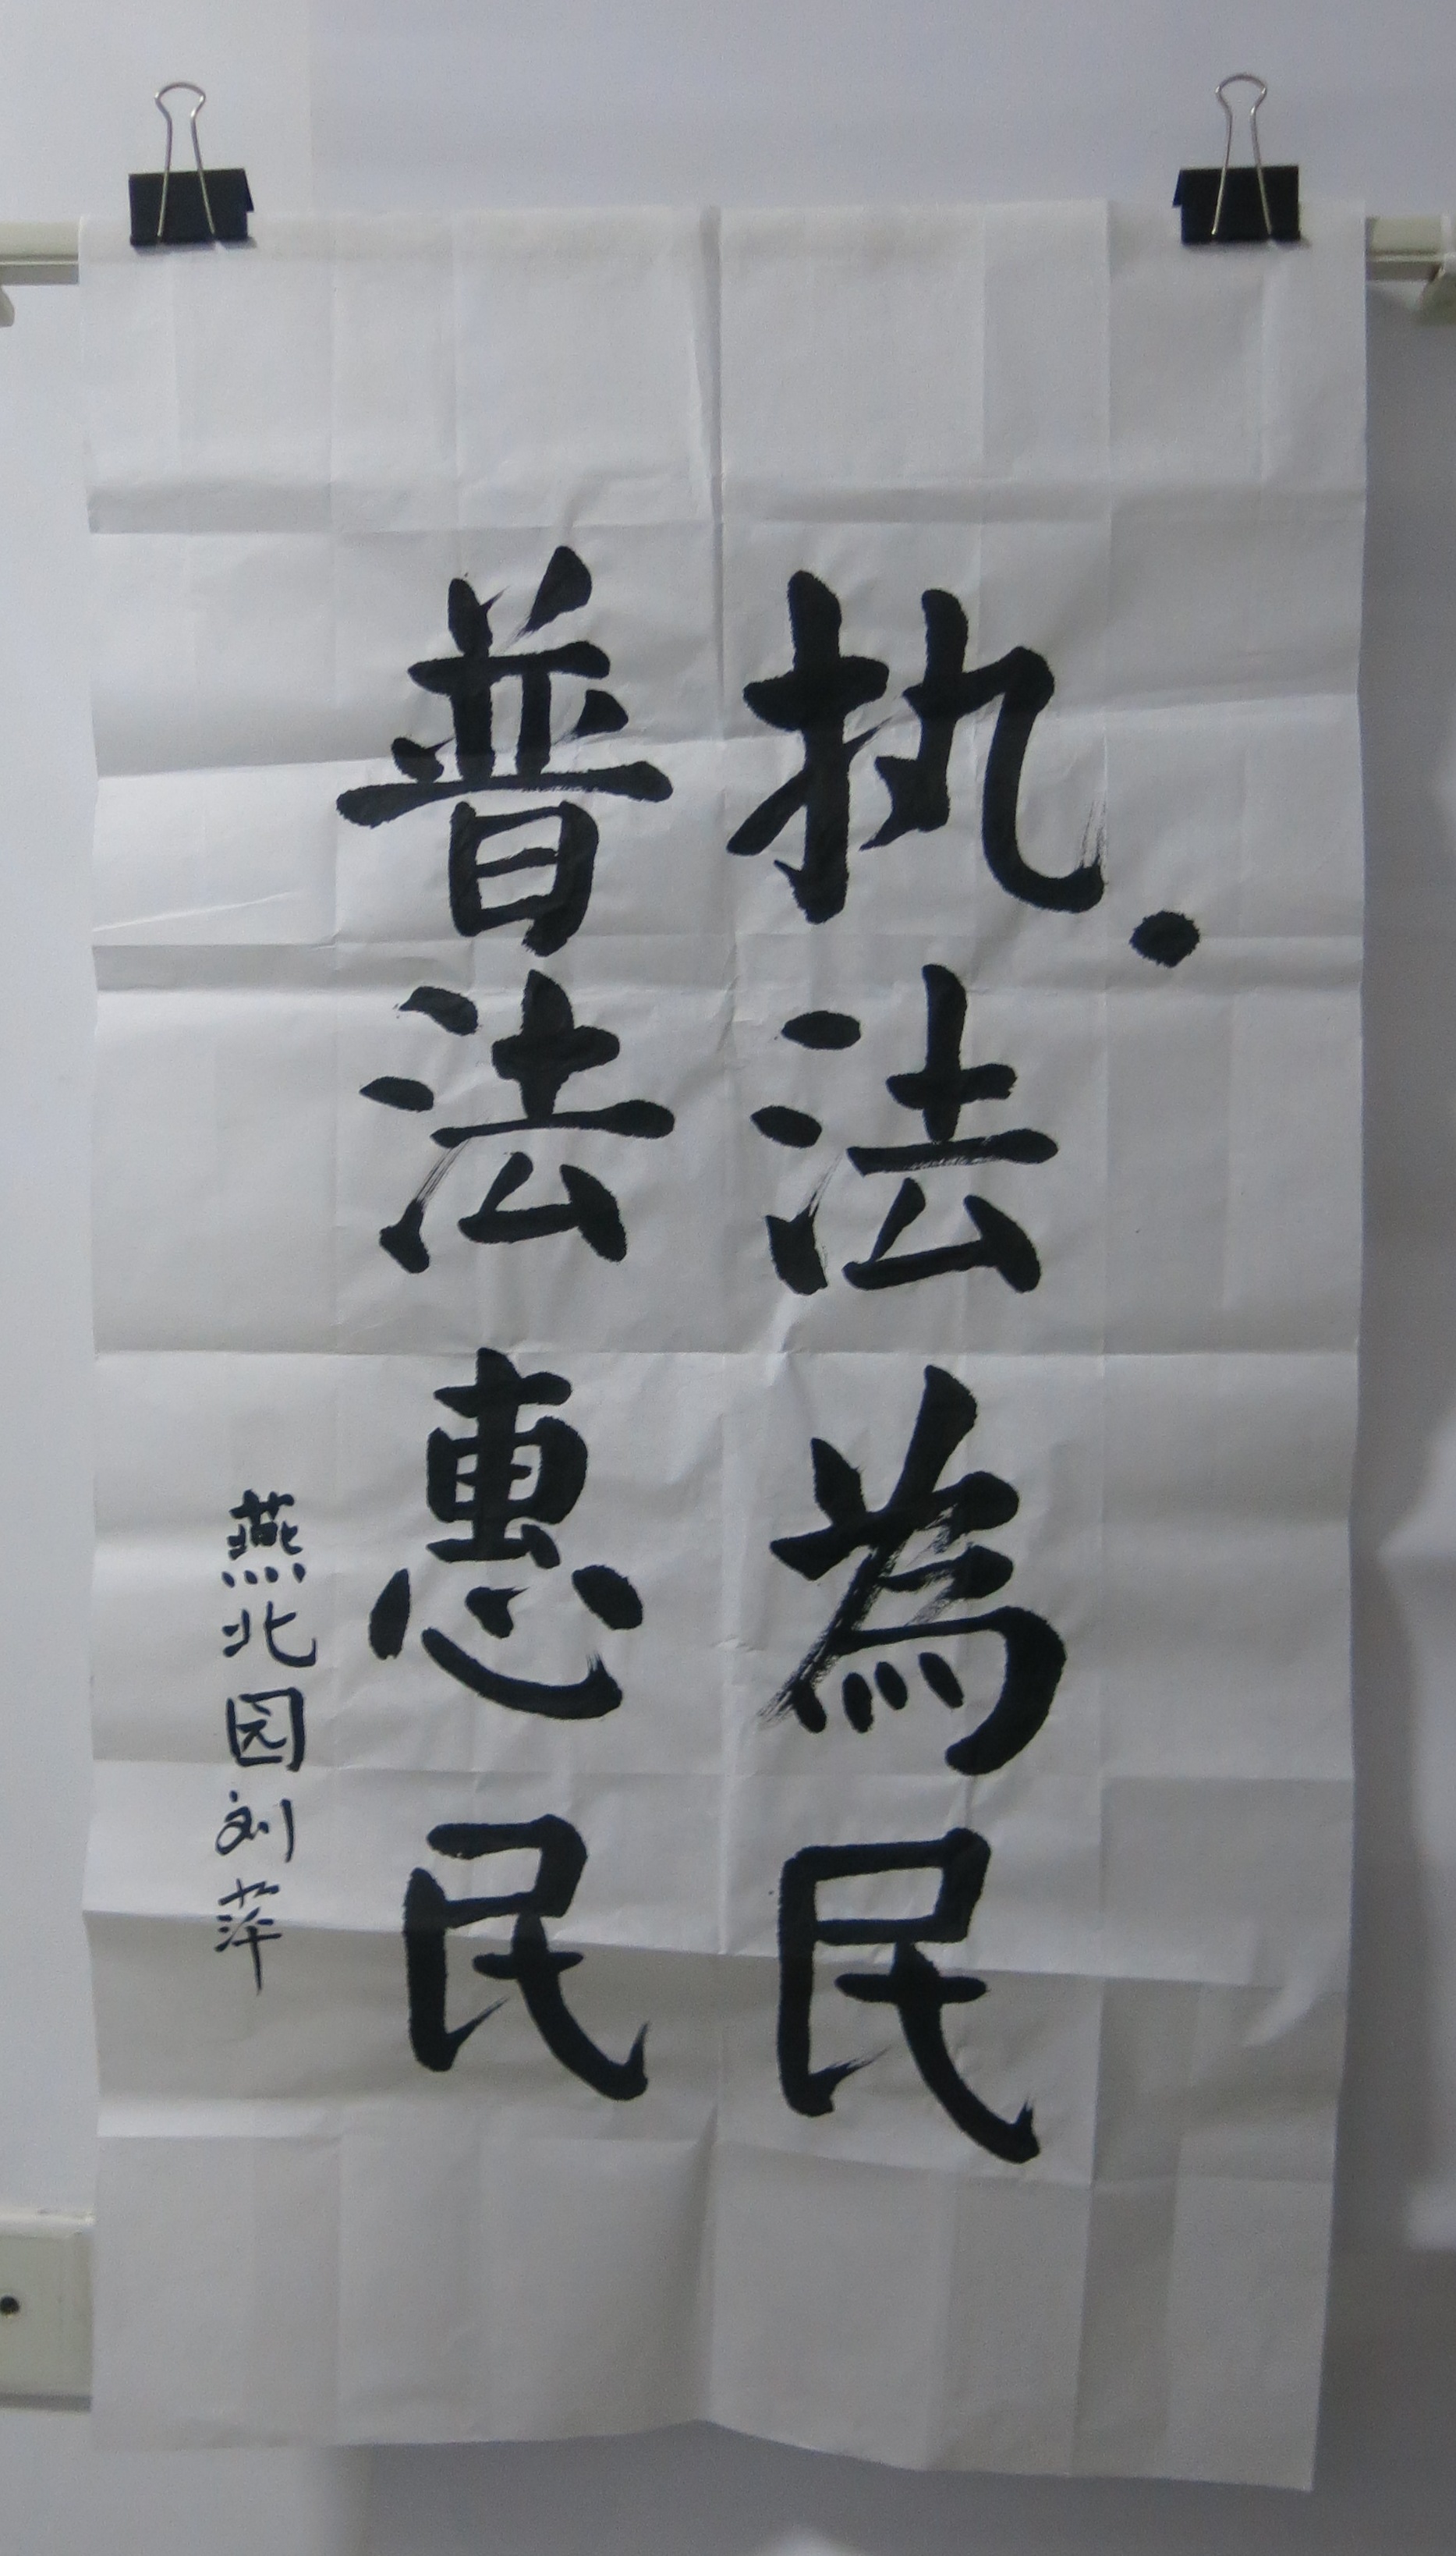 执法為民
普法惠民
燕北园刘萍